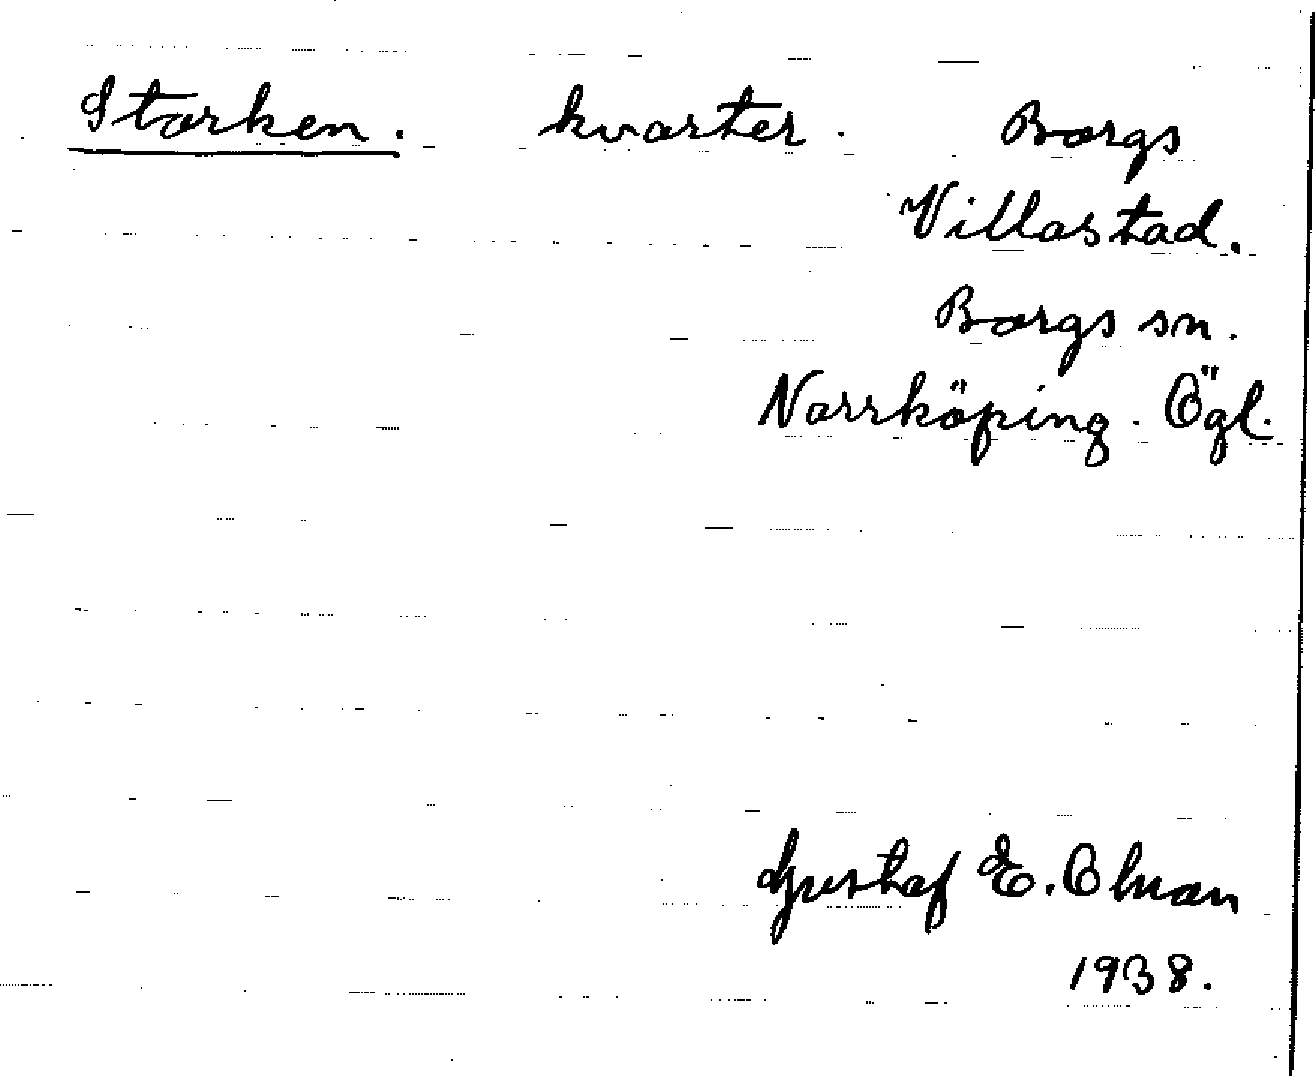 Storken. kvarter. Borgs
Villastad.
Borgs sn.
Norrköping. Ögl.
Gustaf E. Ohman
1938.